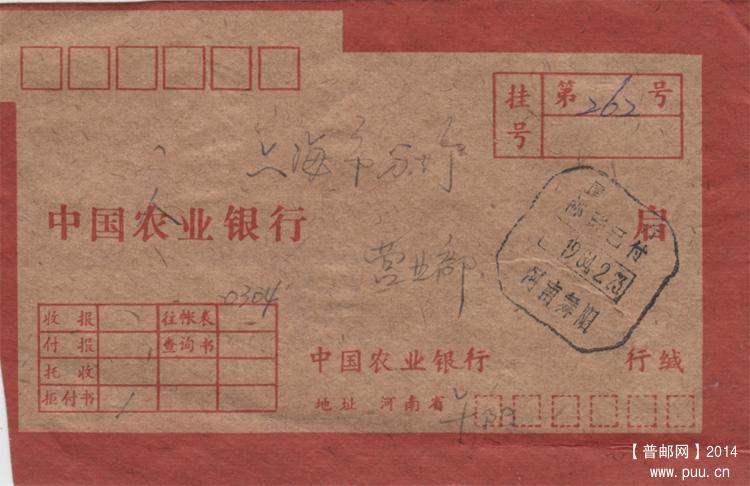 挂号 第262号
上海市分行
中国农业银行 启
营业部
邮资已付
1984.2.23
河南舞阳
0304
收报 往帐表
付报 查询书
托收
拒付书
中国农业银行 行缄
地址 河南省
【普邮网】2014
www.puu.cn